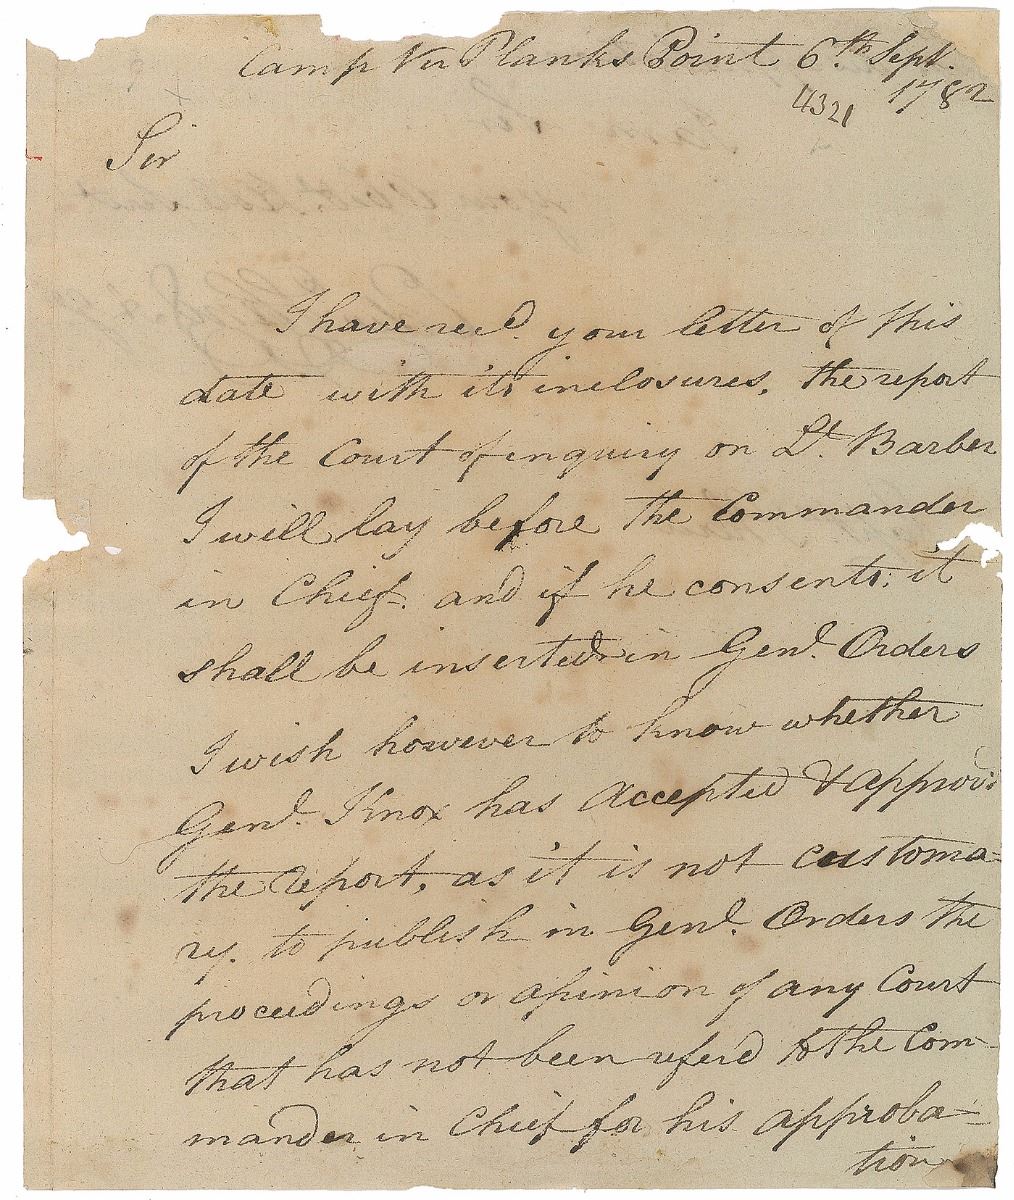 Camp Ver Planks Point 6.th Sept.
1782
4321
Sir
I have recd. your letter of this
date with its inclosures, the report
of the Court of inquiry on Lt. Barber
I will lay before the Commander
in Chief. and if he consents, it
shall be inserted in Genl. Orders
I wish however to know whether
Genl. Knox has accepted & approvd
the report, as it is not customa-
ry. to publish in Genl. Orders the
proceedings or opinion of any Court
that has not been referd to the Com-
mander in Chief for his approba-
tion